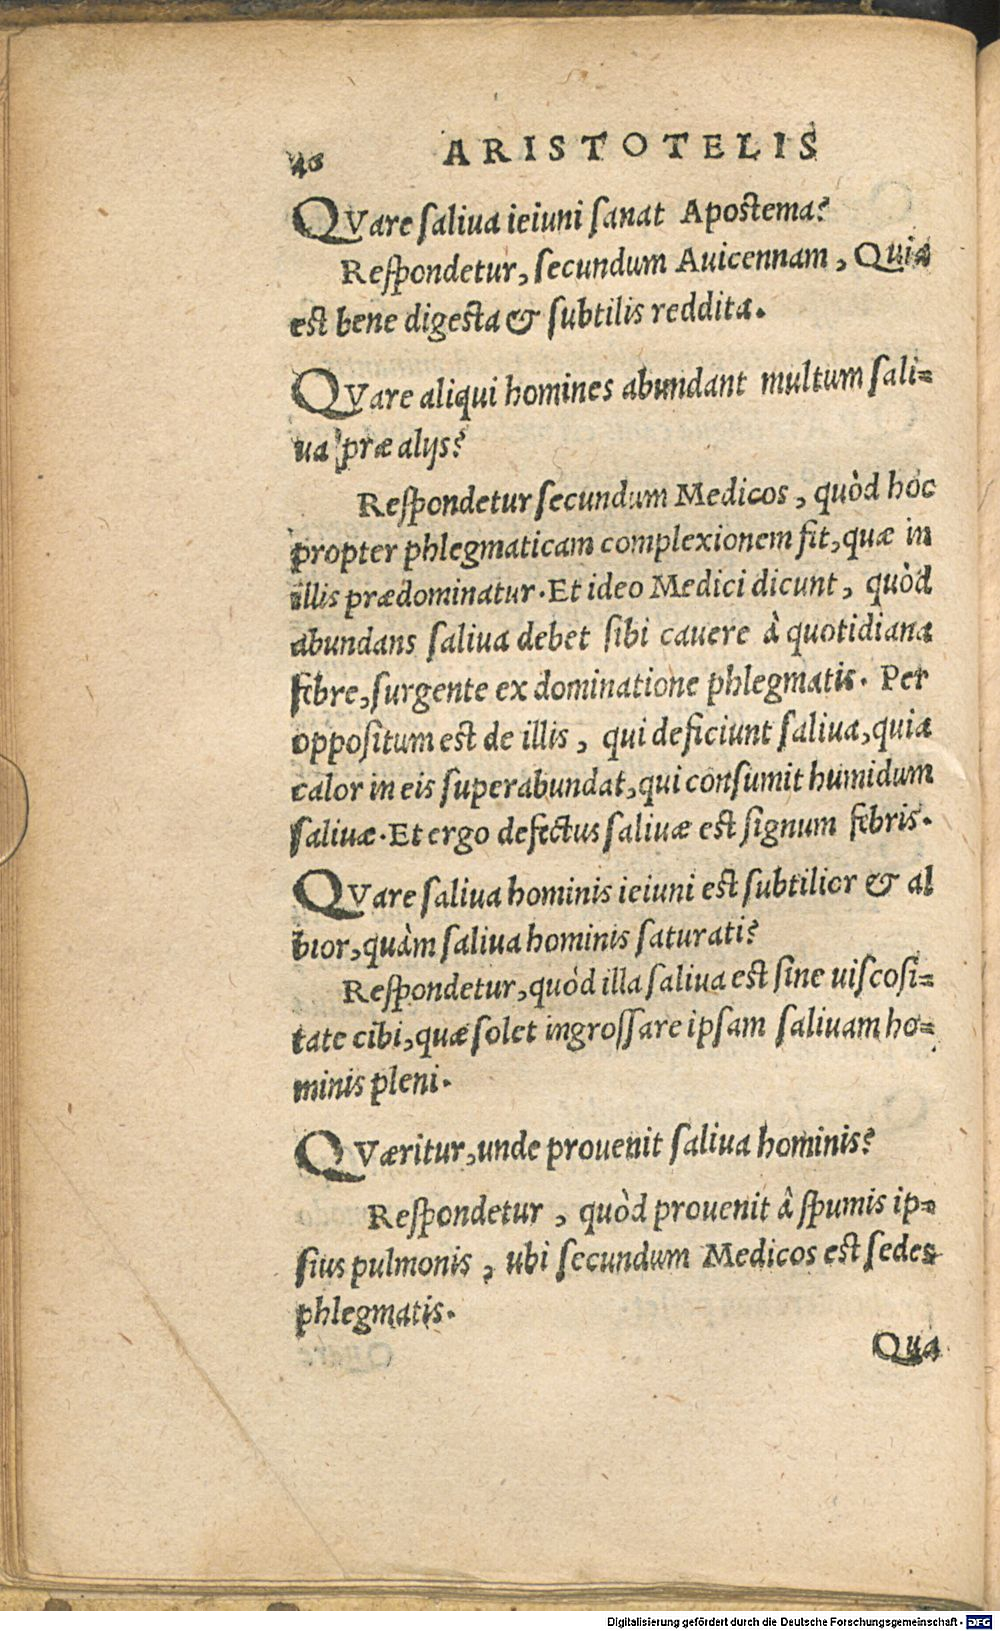 40 ARISTOTELIS
QVare saliua ieiuni sanat Apostema?
Respondetur, secundum Auicennam, Quia
est bene digesta & subtilis reddita.
QVare aliqui homines abundant multum sali=
ua præ alijs?
Respondetur secundum Medicos, quòd hoc
propter phlegmaticam complexionem fit, quæ in
illis prædominatur. Et ideo Medici dicunt, quòd
abundans saliua debet sibi cauere à quotidiana
febre, surgente ex dominatione phlegmatis. Per
oppositum est de illis, qui deficiunt saliua, quia
calor in eis superabundat, qui consumit humidum
saliuæ. Et ergo defectus saliuæ est signum febris.
QVare saliua hominis ieiuni est subtilior & al
bior, quàm saliua hominis saturati?
Respondetur, quòd illa saliua est sine uiscosi=
tate cibi, quæ solet ingrossare ipsam saliuam ho=
minis pleni.
QVæritur, unde prouenit saliua hominis?
Respondetur, quòd prouenit â spumis ip=
sius pulmonis, ubi secundum Medicos est sedes
phlegmatis.
Qua
Digitalisierung gefördert durch die Deutsche Forschungsgemeinschaft - DFG